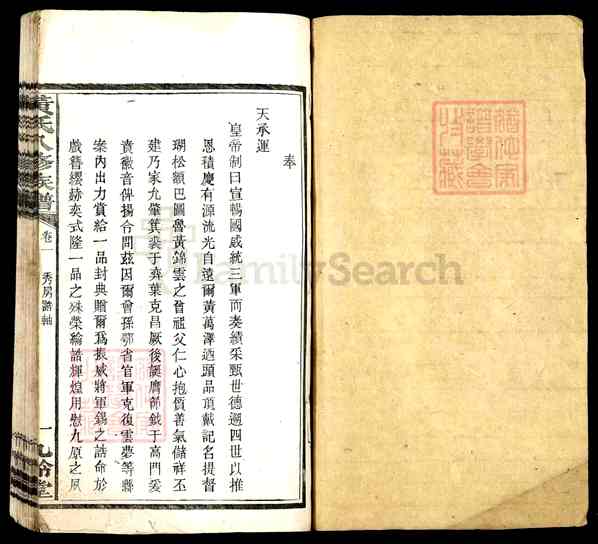 奉
天承運
皇帝制曰宣暢國威統三軍而奏績采甄世德遡四世以推
恩積慶有源流光自遠爾黃萬澤迺頭品頂戴記名提督
瑚松額巴圖魯黃錦雲之曾祖父仁心抱質善氣儲祥丕
建乃家九肇箕裘于奕葉克昌厥後誕膺節鉞于高門爰
賁徽音俾揚令問茲因爾曾孫鄂省官軍克復雲夢等縣
案內出力賞給一品封典贈爾爲振威將軍錫之誥命於
戲簪纓赫奕式隆一品之殊榮綸誥輝煌用慰九原之夙
黃氏八修族譜
卷一
秀房誥軸
一
FamilySearch